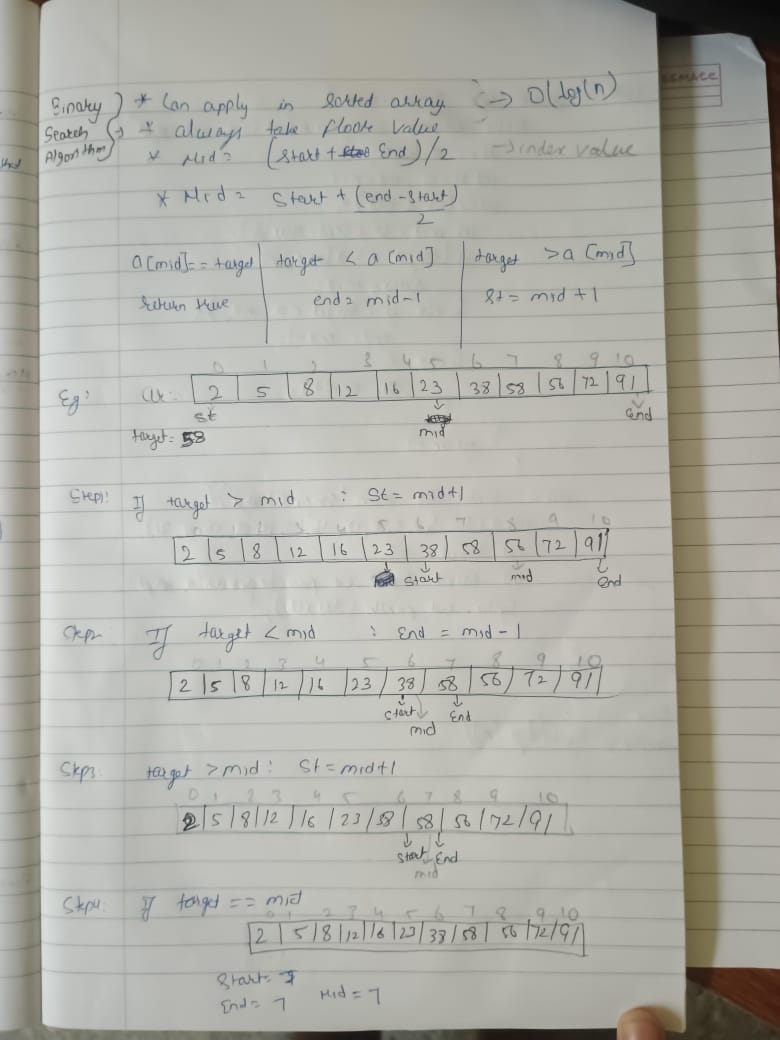 Binary Search Algorithm
* Can apply in sorted array → O(log(n)
* always take floor value
* Mid = (start + End)/2 → index value
* Mid = Start + (end - start)/2
a[mid] == target | target < a[mid] | target > a[mid]
return true | end = mid-1 | st = mid+1
0 1 2 3 4 5 6 7 8 9 10
Eg: 2 | 5 | 8 | 12 | 16 | 23 | 38 | 58 | 56 | 72 | 91
st mid End
target = 58
Step1: If target > mid : St = mid+1
0 1 2 3 4 5 6 7 8 9 10
2 | 5 | 8 | 12 | 16 | 23 | 38 | 58 | 56 | 72 | 91
start mid End
Step2 If target < mid : End = mid-1
0 1 2 3 4 5 6 7 8 9 10
2 | 5 | 8 | 12 | 16 | 23 | 38 | 58 | 56 | 72 | 91
start End
mid
Step3: target > mid : St = mid+1
0 1 2 3 4 5 6 7 8 9 10
2 | 5 | 8 | 12 | 16 | 23 | 38 | 58 | 56 | 72 | 91
Start End
mid
Step4: If target == mid
0 1 2 3 4 5 6 7 8 9 10
2 | 5 | 8 | 12 | 16 | 23 | 38 | 58 | 56 | 72 | 91
Start = 7
End = 7 Mid = 7